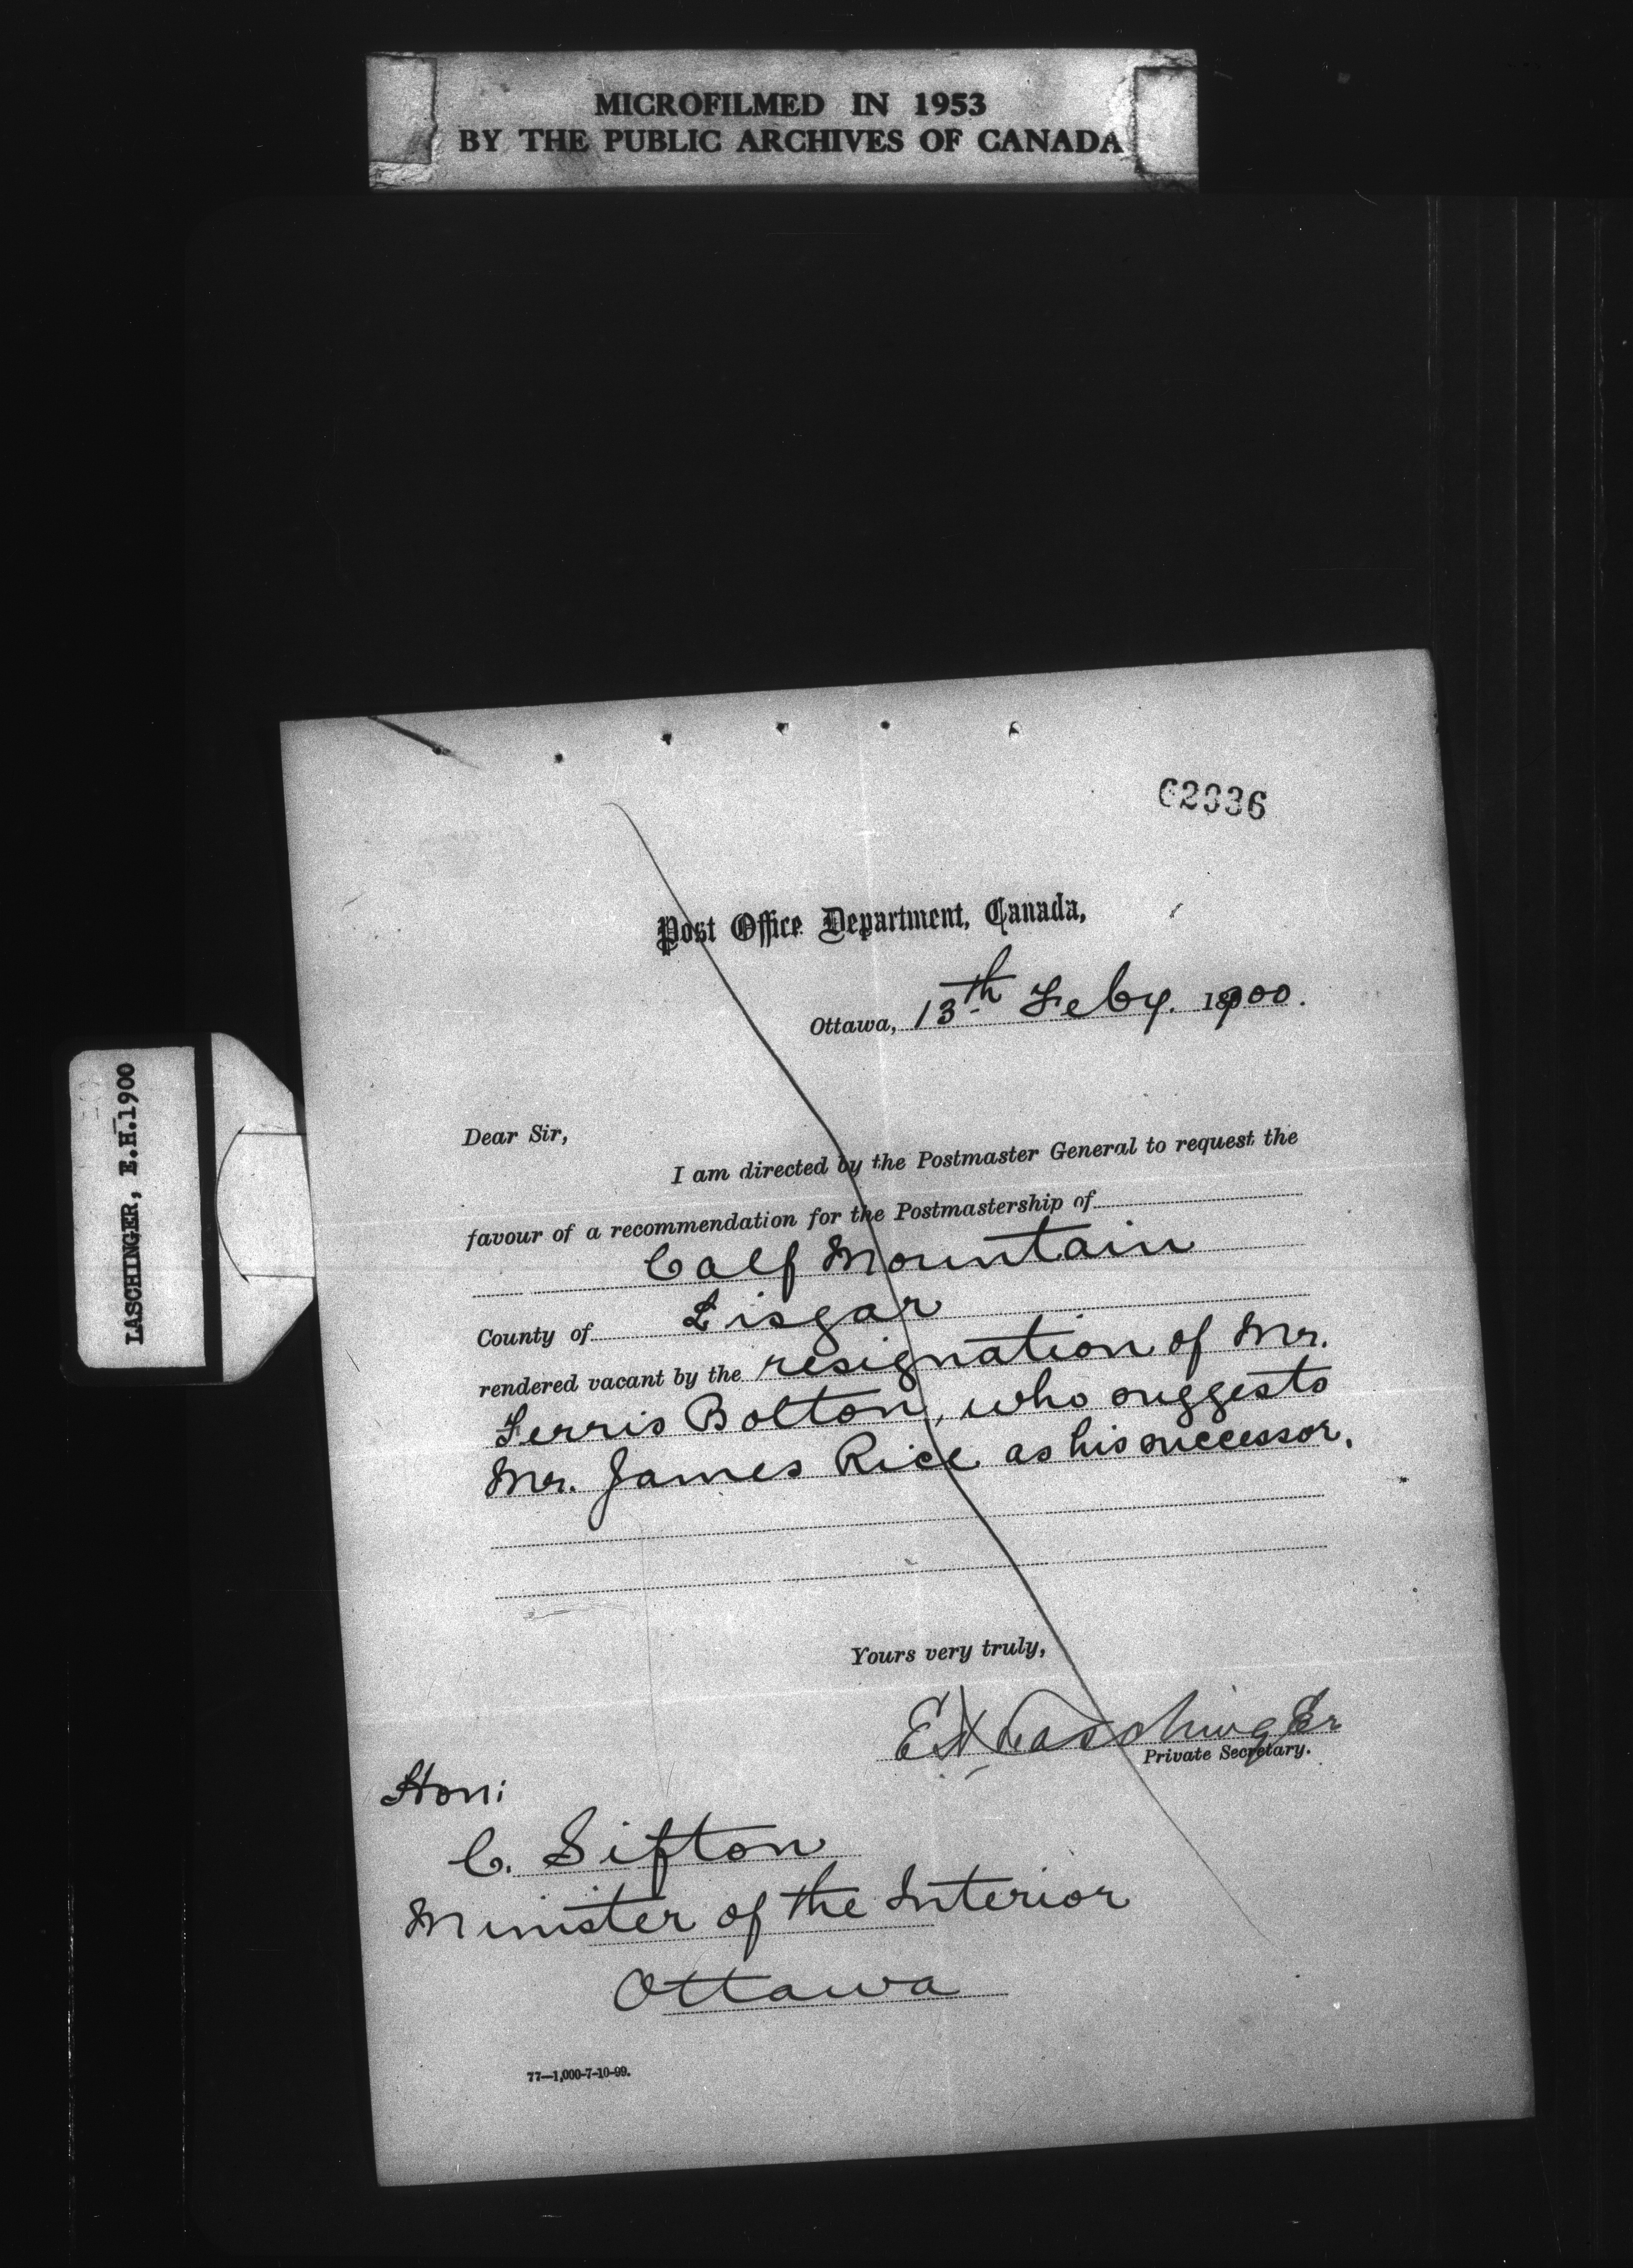 MICROFILMED IN 1953
BY THE PUBLIC ARCHIVES OF CANADA
LASCHINGER, E.H. 1900
62936
Post Office Department, Canada,
Ottawa, 13th Feby. 1900.
Dear Sir,
I am directed by the Postmaster General to request the
favour of a recommendation for the Postmastership of
Calf Mountain
County of Lisgar
rendered vacant by the resignation of Mr.
Ferris Bolton, who suggests
Mr. James Rice as his successor.
Yours very truly,
EH Laschinger
Private Secretary.
Hon:
C. Sifton
Minister of the Interior
Ottawa
77—1,000-7-10-99.